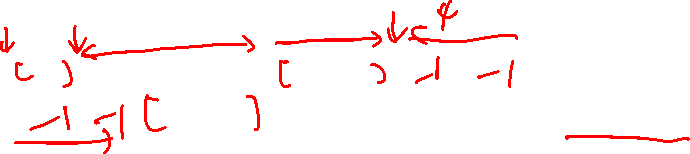 4
[ ] [ ) -1 -1
-1 -1 [ ]